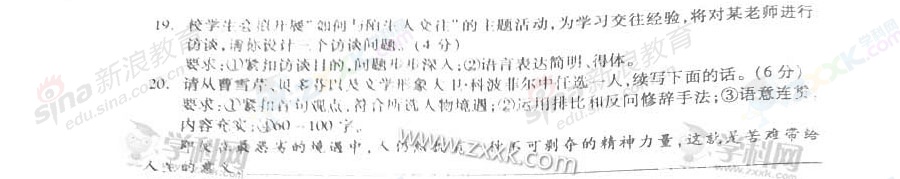 19. 校学生会拟开展“如何与陌生人交往”的主题活动,为学习交往经验,将对某老师进行
访谈,请你设计一个访谈问题。(4分)
要求:①紧扣访谈目的,问题步步深入;②语言表达简明、得体。
20. 请从曹雪芹、贝多芬以及文学形象大卫·科波菲尔中任选一人,续写下面的话。(6分)
要求:①紧扣首句观点,符合所选人物境遇;②运用排比和反问修辞手法;③语意连贯,
内容充实;④60-100字。
即使在最恶劣的境遇中,人仍然拥有一种不可剥夺的精神力量,这就是苦难带给
人生的意义。
sina新浪教育
edu.sina.com.cn
学科网
www.zxxk.com